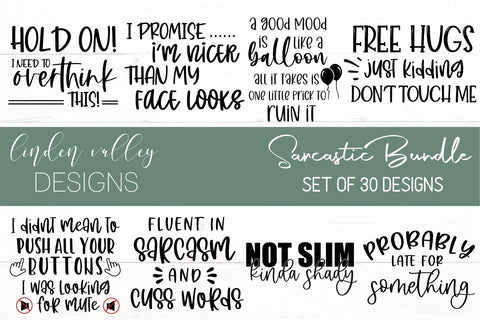 HOLD ON!
I NEED TO
overthink
THIS!
I PROMISE ......
i'm nicer
THAN MY
FACE LOOKS
a good mood
is like a
balloon
all it takes is
one little prick to
ruin it
FREE HUGS
just kidding
DON'T TOUCH ME
linden valley
DESIGNS
Sarcastic Bundle
SET OF 30 DESIGNS
I didnt mean to
PUSH ALL YOUR
BUTTONS
I was looking
for mute
FLUENT IN
SARCASM
AND
CUSS WORDS
NOT SLIM
kinda shady
PROBABLY
LATE FOR
something